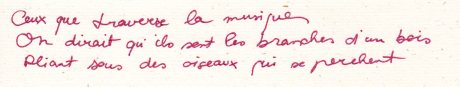 Ceux que traverse la musique
On dirait qu'ils sont les branches d'un bois
Pliant sous des oiseaux qui se perchent